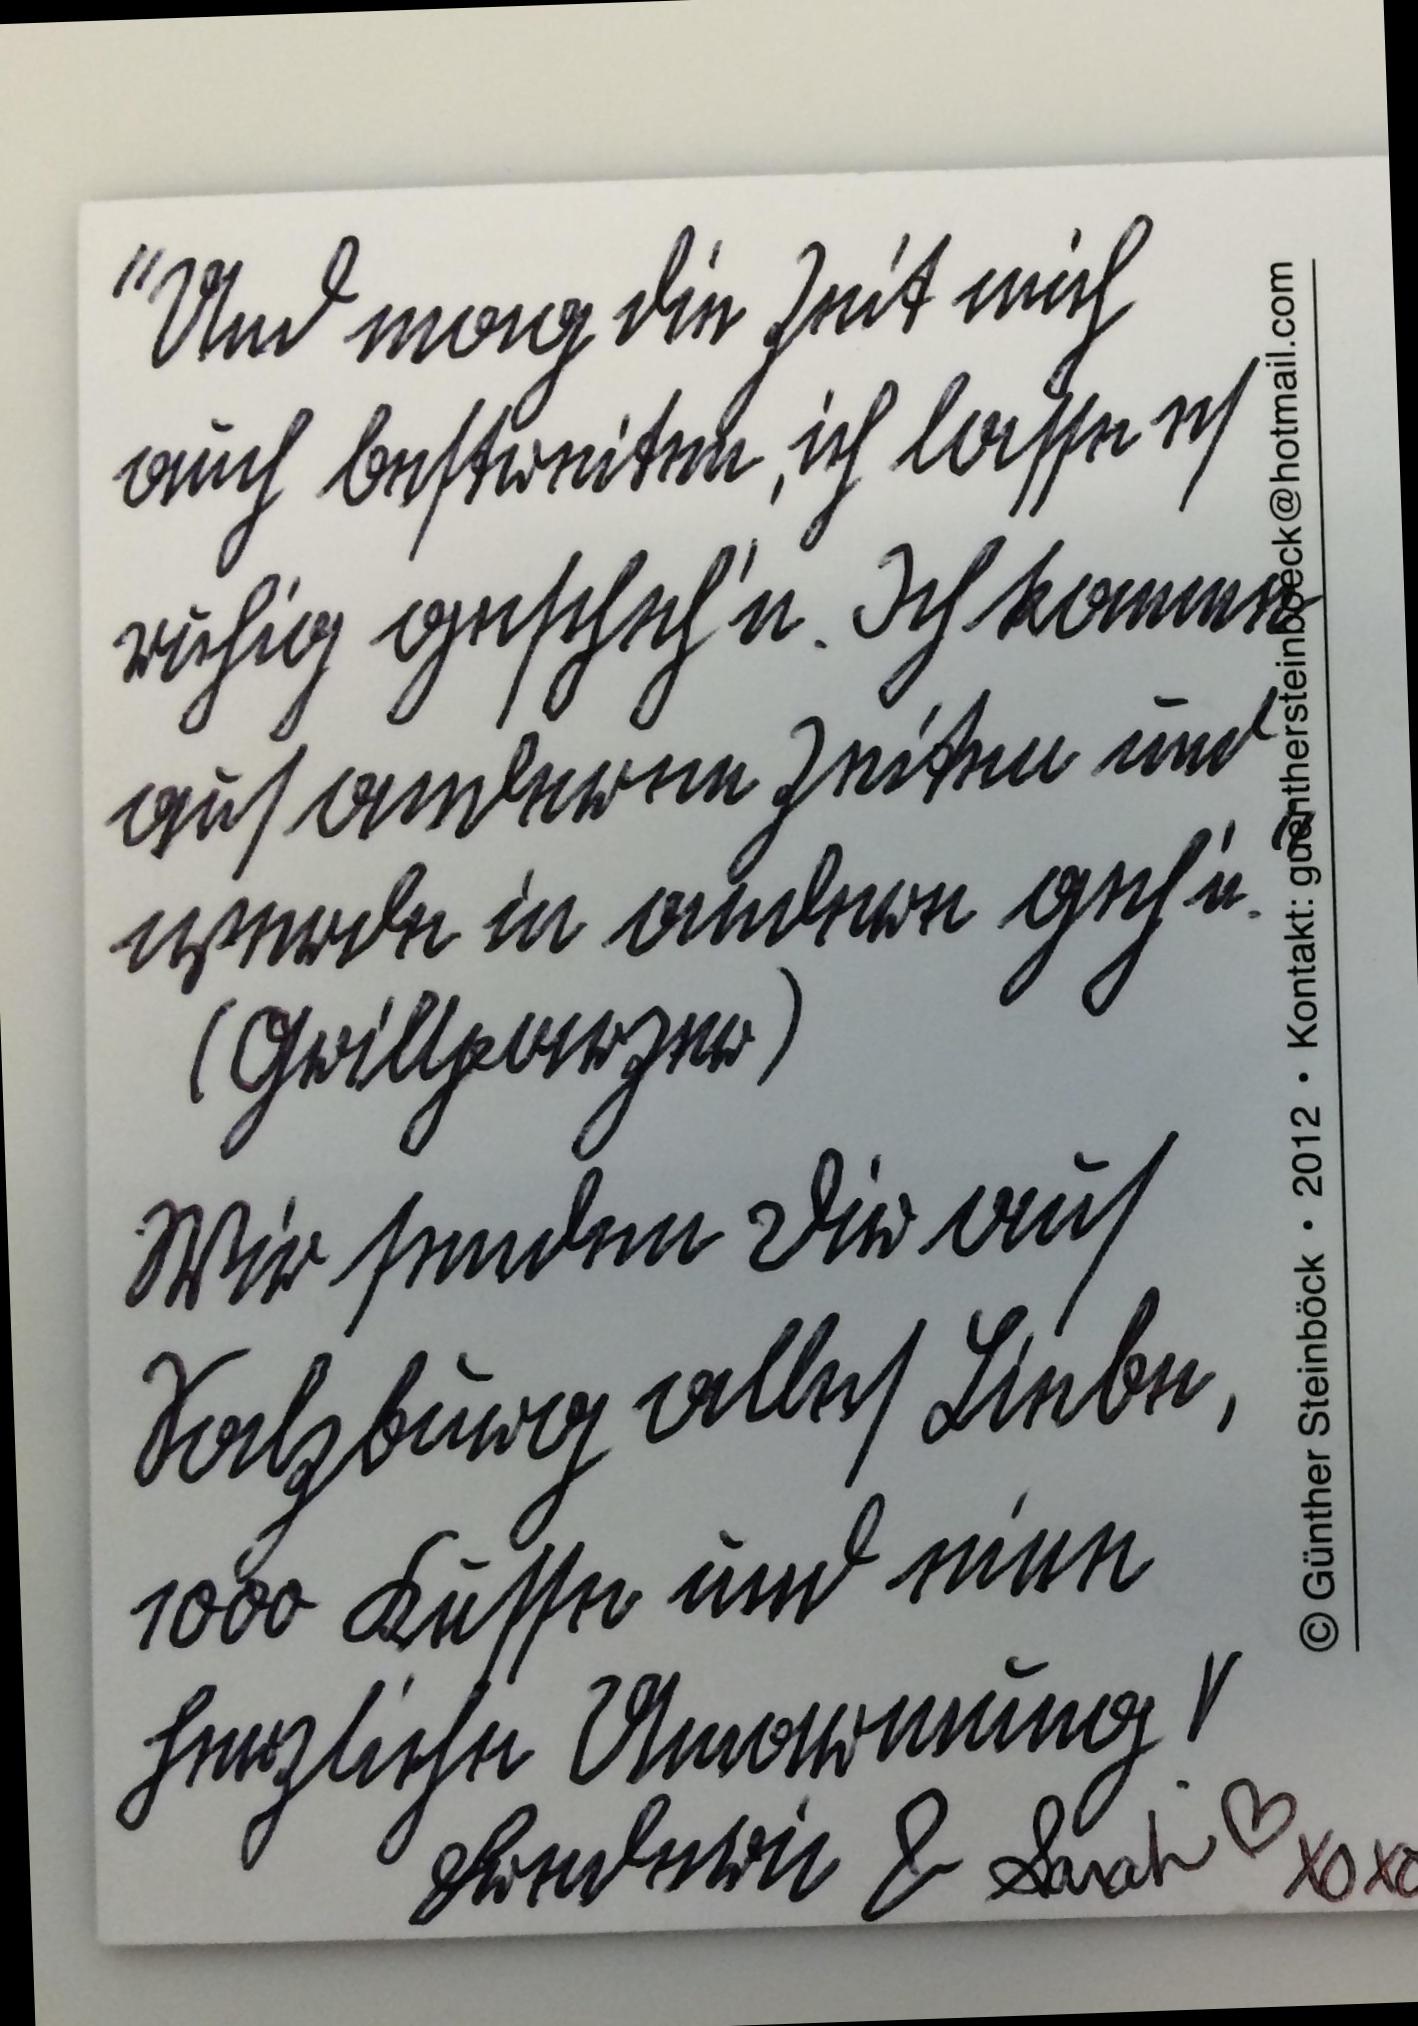 "Und mag die Zeit mich
auch bestreiten, ich lasse es
ruhig gescheh'n. Ich komme
aus anderen Zeiten und
werde in andere geh'n."
(Grillparzer)
Wir senden Dir aus
Salzburg alles Liebe,
1000 Küsse und eine
herzliche Umarmung!
& Sarah ♡ xoxo
© Günther Steinböck • 2012 • Kontakt: guenthersteinboeck@hotmail.com